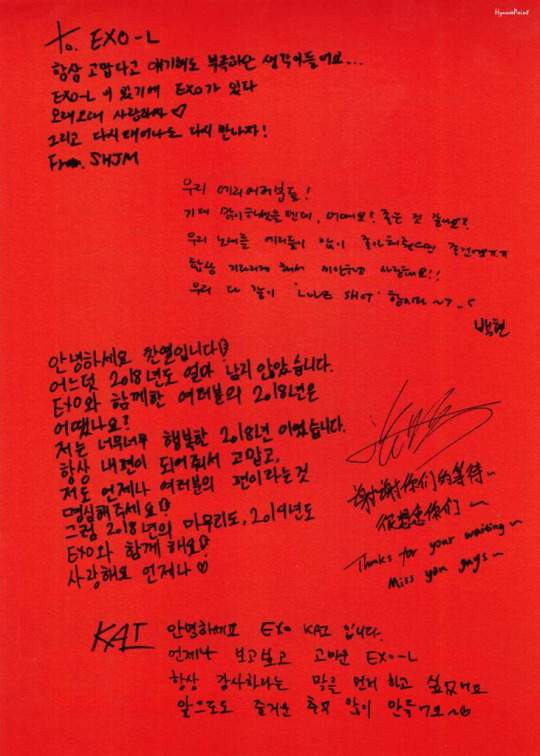 HyunnePoint
To. EXO-L
항상 고맙다고 얘기해도 부족하단 생각이들어요...
EXO-L이 있기에 EXO가 있다
오래오래 사랑하자♡
그리고 다시 태어나도 다시 만나자!
From. SHJM
우리 에리여러분들!
기대 많이하셨을텐데, 어때요? 좋은 것 같나요?
우리 노래를 에리들이 많이 좋아해줬으면 좋겠어요ㅠㅠ
항상 기다리게 해서 미안하고 사랑해요!!
우리 다 같이 'LOVE SHOT' 합시다~
백현
안녕하세요 찬열입니다
어느덧 2018년도 얼마 남지 않았습니다.
EXO와 함께한 여러분의 2018년은
어땠나요?
저는 너무너무 행복한 2018년 이었습니다.
항상 내편이 되어줘서 고맙고,
저도 언제나 여러분의 편이라는것
명심해주세요
그럼 2018년의 마무리도, 2019년도
EXO와 함께 해요
사랑해요 언제나♡
谢谢你们的等待~
很想念你们~
Thanks for your waiting~
Miss you guys~
KAI 안녕하세요 EXO KAI 입니다.
언제나 보고싶고 고마운 EXO-L
항상 감사하다는 말을 먼저 하고 싶었어요
앞으로도 즐거운 추억 많이 만들어요~